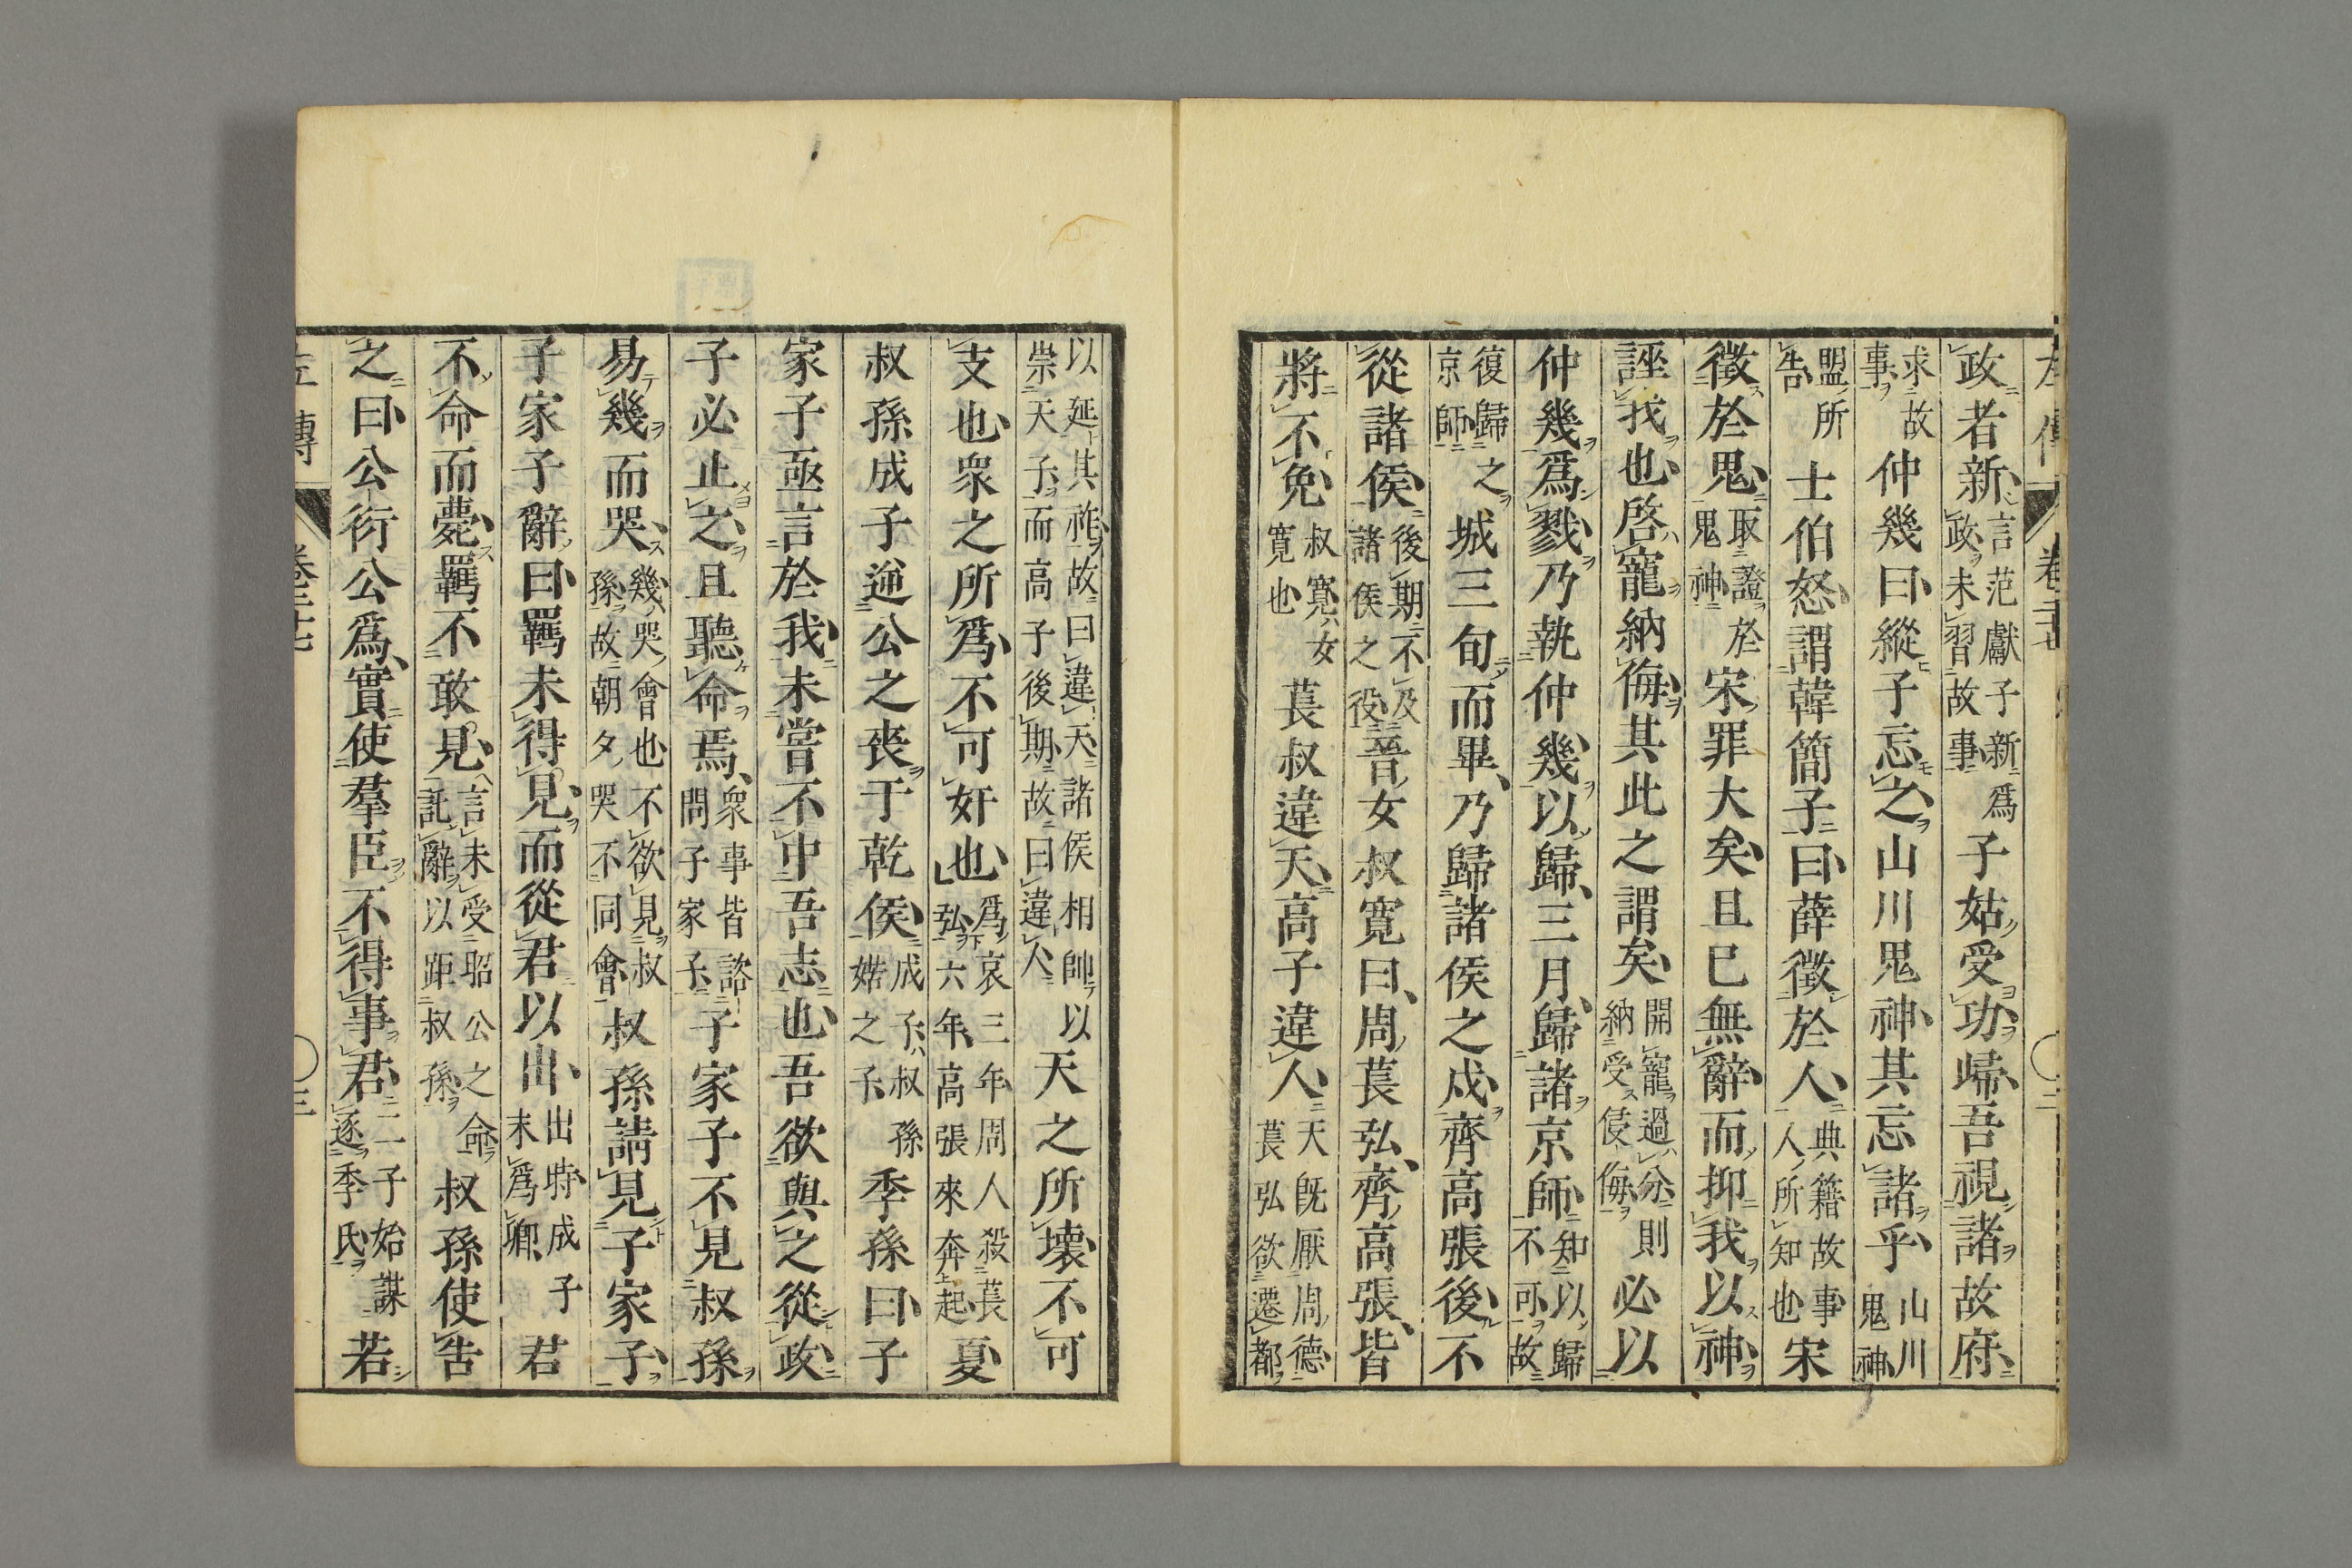 左傳 卷二十七 〇二
政者新言范獻子新爲政未習故事子姑受功歸吾視諸故府
求故事仲幾曰縱子忘之山川鬼神其忘諸乎山川鬼神
盟所告士伯怒謂韓簡子曰薛徵於人典籍故事人所知也宋
徵於鬼取證於鬼神宋罪大矣且已無辭而抑我以神
誣我也啓寵納侮其此之謂矣開寵過分則納受侵侮必以
仲幾爲戮乃執仲幾以歸三月歸諸京師知以歸不可故
復歸之京師城三旬而畢乃歸諸侯之戍齊高張後不
從諸侯後期不及諸侯之役晉女叔寛曰周萇弘齊高張皆
將不免叔寛女寛也萇叔違天高子違人天既厭周德萇弘欲遷都
以延其祚故曰違天諸侯相帥以崇天子而高子後期故曰違人天之所壞不可
支也衆之所爲不可奸也爲哀三年周人殺萇弘六年高張來奔起夏
叔孫成子逆公之喪于乾侯成子叔孫婼之子季孫曰子
家子亟言於我未嘗不中吾志也吾欲與之從政
子必止之且聽命焉衆事皆諮問子家子子家子不見叔孫
易幾而哭幾哭會也不欲見叔孫故朝夕哭不同會叔孫請見子家子
子家子辭曰羈未得見而從君以出出時成子未爲卿君
不命而薨羈不敢見言未受昭公之命託辭以距叔孫叔孫使告
之曰公衍公爲實使羣臣不得事君二子始謀逐季氏若
左傳 卷二十七 〇三